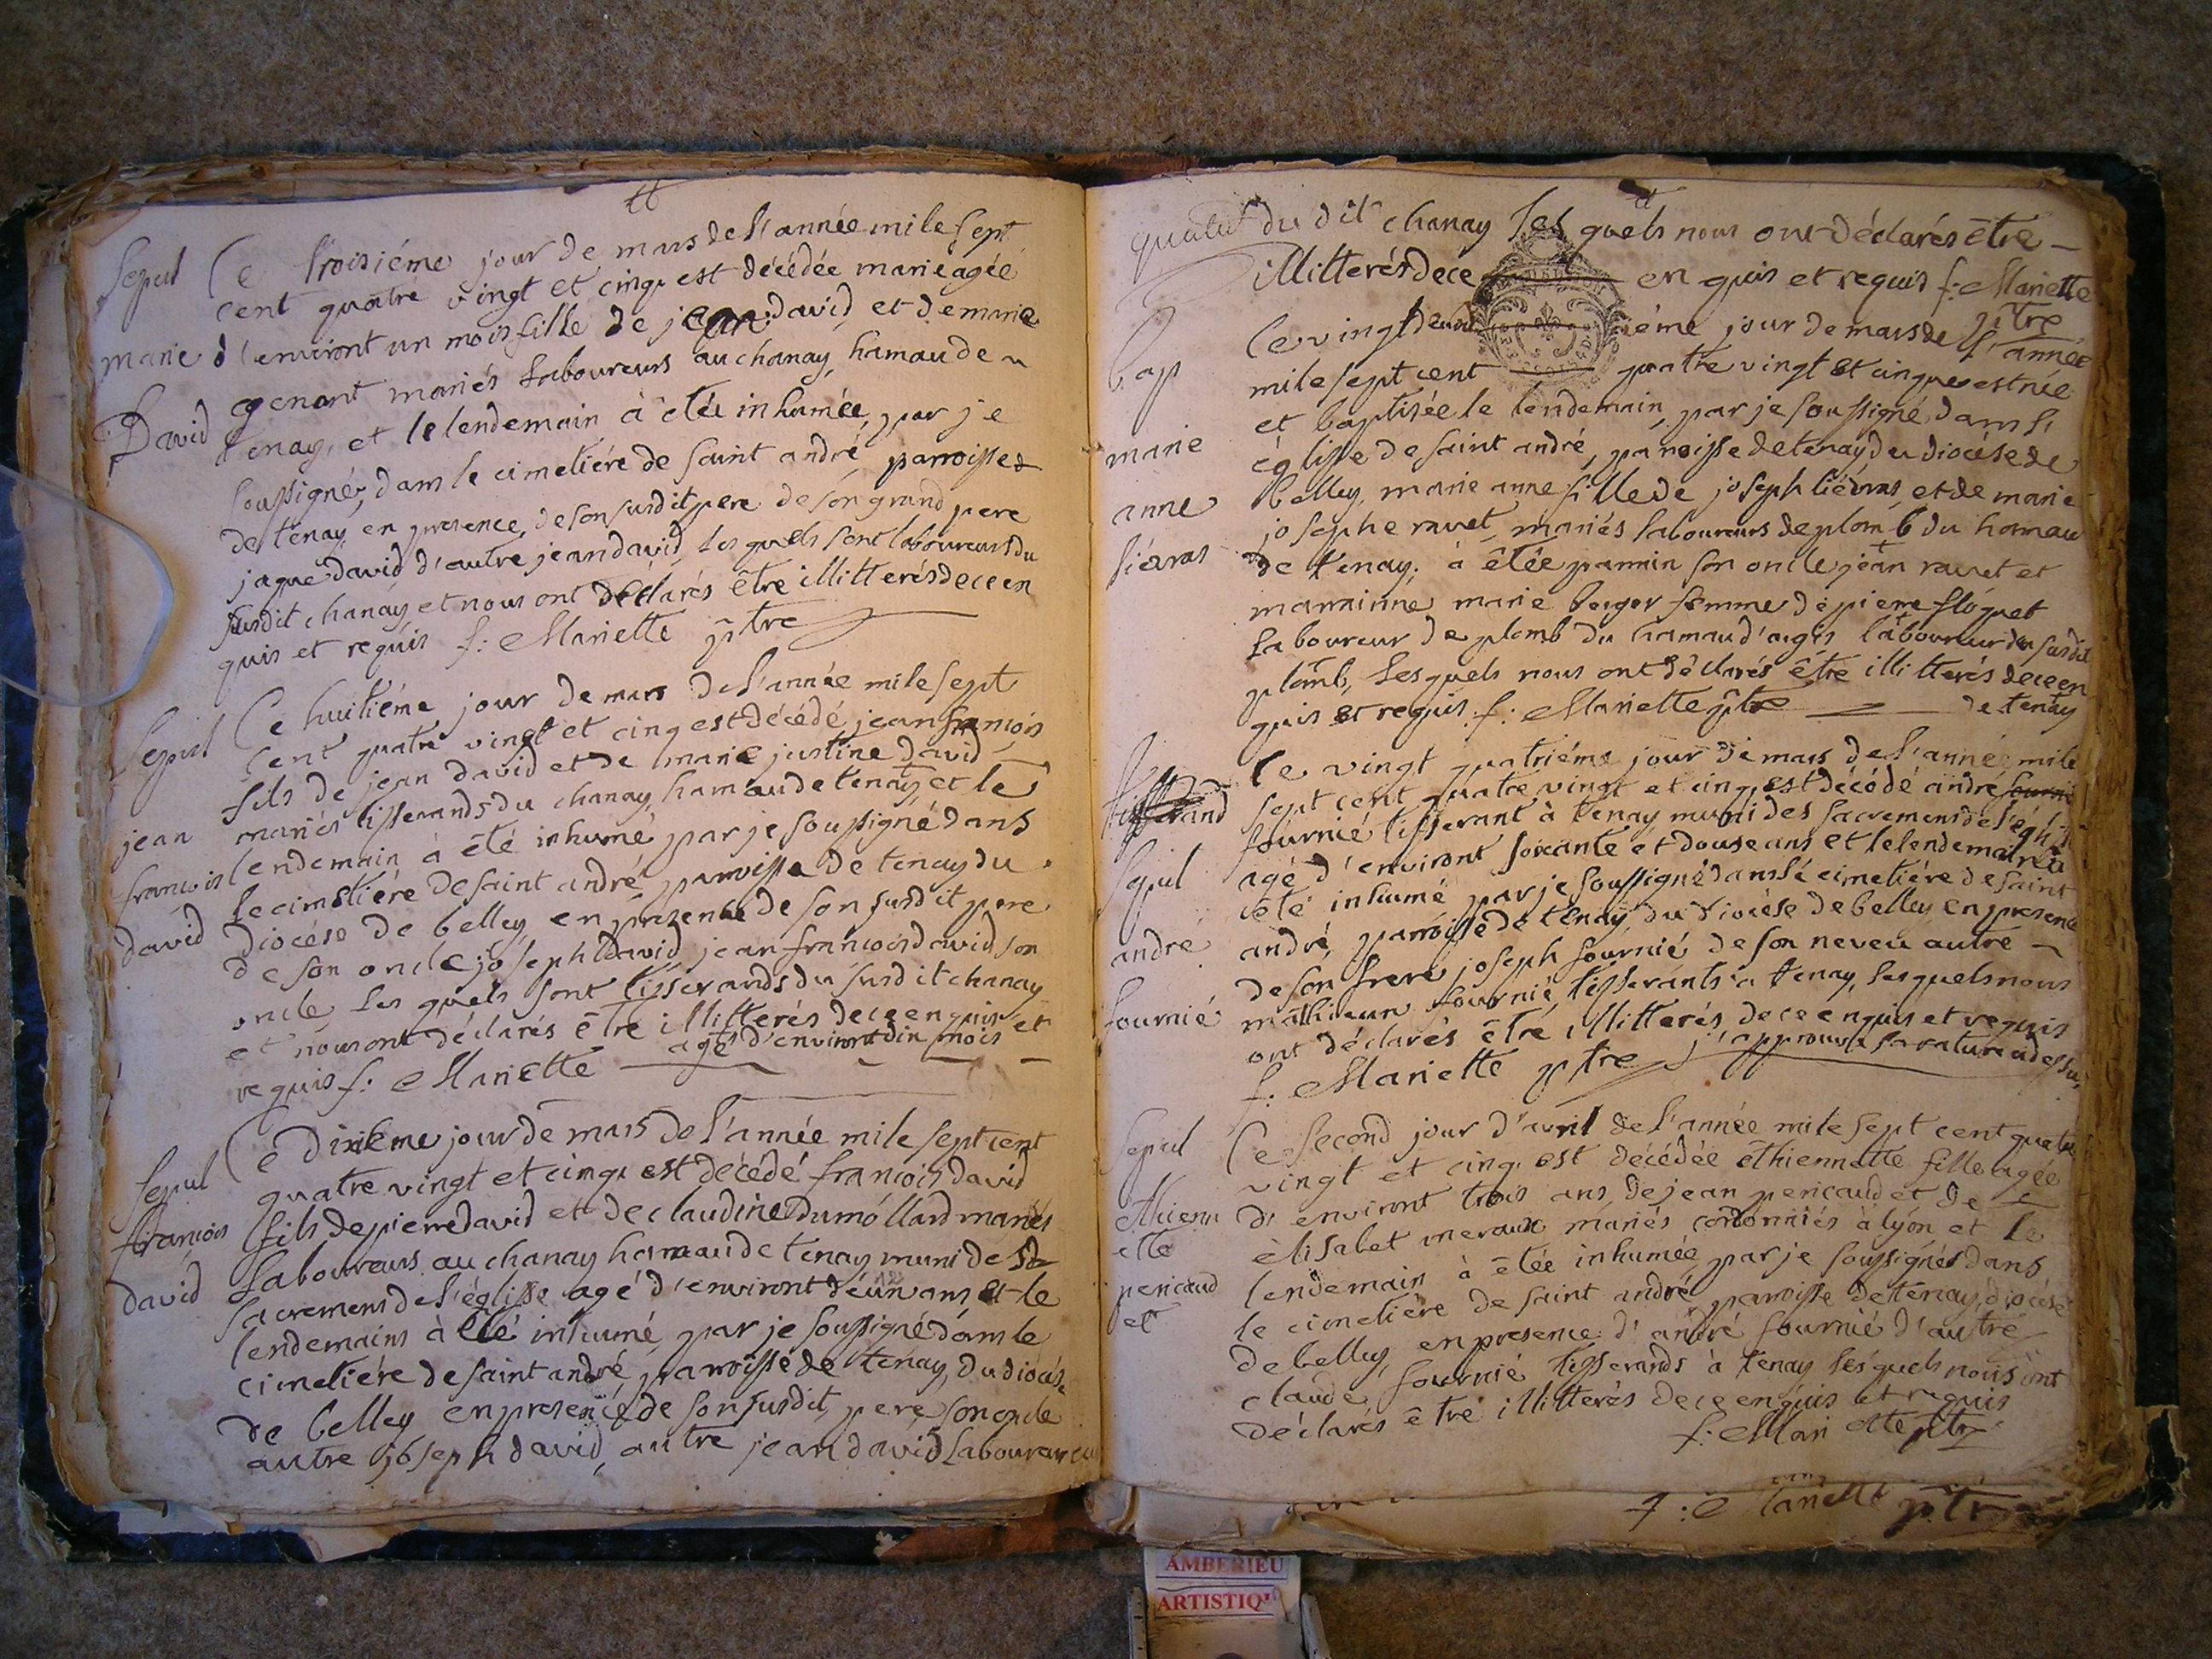 Sepul
marie
David
Ce troisiéme jour de mars de l'année mile sept
cent quatre vingt et cinq est décédée marie agée
d'environt un mois fille de jean david et de marie
genant mariés laboureurs au chanay, hamau de
tenay, et le lendemain à étée inhumée, par je
soussigné, dans le cimetiére de saint andré parroisse
de tenay en presence, de son susdit pere de son grand pere
jaque david d'autre jean david, les quels sont laboureurs du
susdit chanay et nous ont déclarés être illitterés de ce en
quis et requis f: Mariette ptre
Sepul
jean
francois
david
Ce huitiéme jour de mars de l'année mile sept
cent quatre vingt et cinq est décédé jean francois
fils de jean david et de marie justine david
mariés tisserands du chanay, hamau de tenay et le
lendemain à été inhumé par je soussigné dans
le cimetiére de saint andré parroisse de tenay du
diocése de belley en présence de son susdit pere
de son oncle joseph david jean francois david son
oncle, les quels sont tisserands du susdit chanay
et nous ont déclarés être illitterés de ce en quis et
agé d'environt dix mois
requis f: Mariette
Sepul
francois
david
Ce dixiéme jour de mars de l'année mile sept cent
quatre vingt et cinq est décédé francois david
fils de pierre david et de claudine dumollard mariés
laboureurs au chanay hamau de tenay muni de
sacremens de l'églisse agé d'environt ans et le
lendemains à été inhumé par je soussigné dans le
cimetiére de saint andré parroisse de tenay, du diocése
de belley en presence de son susdit pere, son oncle
autre joseph david, autre jean david laboureur
du dit chanay les quels nous ont déclarés être
illitterés de ce en quis et requis f: Mariette
ptre
bap
marie
anne
liévras
Ce vingt iéme jour de mars de l'année
mile sept cent quatre vingt et cinq est née
et baptisée le lendemain, par je soussigné dans l'
églisse de saint andré, parroisse de tenay du diocése de
belley, marie anne fille de joseph liévras, et de marie
josephe ravet, mariés laboureurs de plomb du hamau
de tenay; à étée parrain son oncle jean ravet et
marrainne marie berger femme de pierre floquet
laboureur de plomb du hamau d'argis laboureur du susdit
plomb, les quels nous ont déclarés être illitterés de ce en
quis et requis f: Mariette ptre de tenay
Sepul
andré
fournié
Ce vingt quatriéme jour de mars de l'année mile
sept cent quatre vingt et cinq est décédé andré fournié
fournié tisserant à tenay muni des sacremens de l'église
agé d'environt soixante et douse ans et le lendemain à
été inhumé par je soussigné dans le cimetiére de saint
andré, parroisse de tenay du diocése de belley en presence
de son frere joseph fournié de son neveu autre
mathieu fournié, tisserants à tenay, les quels nous
ont déclarés être illitterés de ce en quis et requis
f: Mariette ptre j'approuve la rature cidessus
Sepul
Ethienn
ette
pericaud
et
Ce second jour d'avril de l'année mile sept cent quatre
vingt et cinq est décédée éthiennette fille agée
d'environt trois ans, de jean pericaud et de
élisabet meraux mariés cordonniés à lyón et le
lendemain à étée inhumée par je soussignés dans
le cimetiére de saint andré parroisse de tenay, diocése
de belley, en presence d'andré fournié d'autre
claude fournié tisserands à tenay les quels nous ont
déclarés être illitterés de ce en quis et requis
f: Mariette ptre
f: Mariette ptre
AMBERIEU
ARTISTIQU